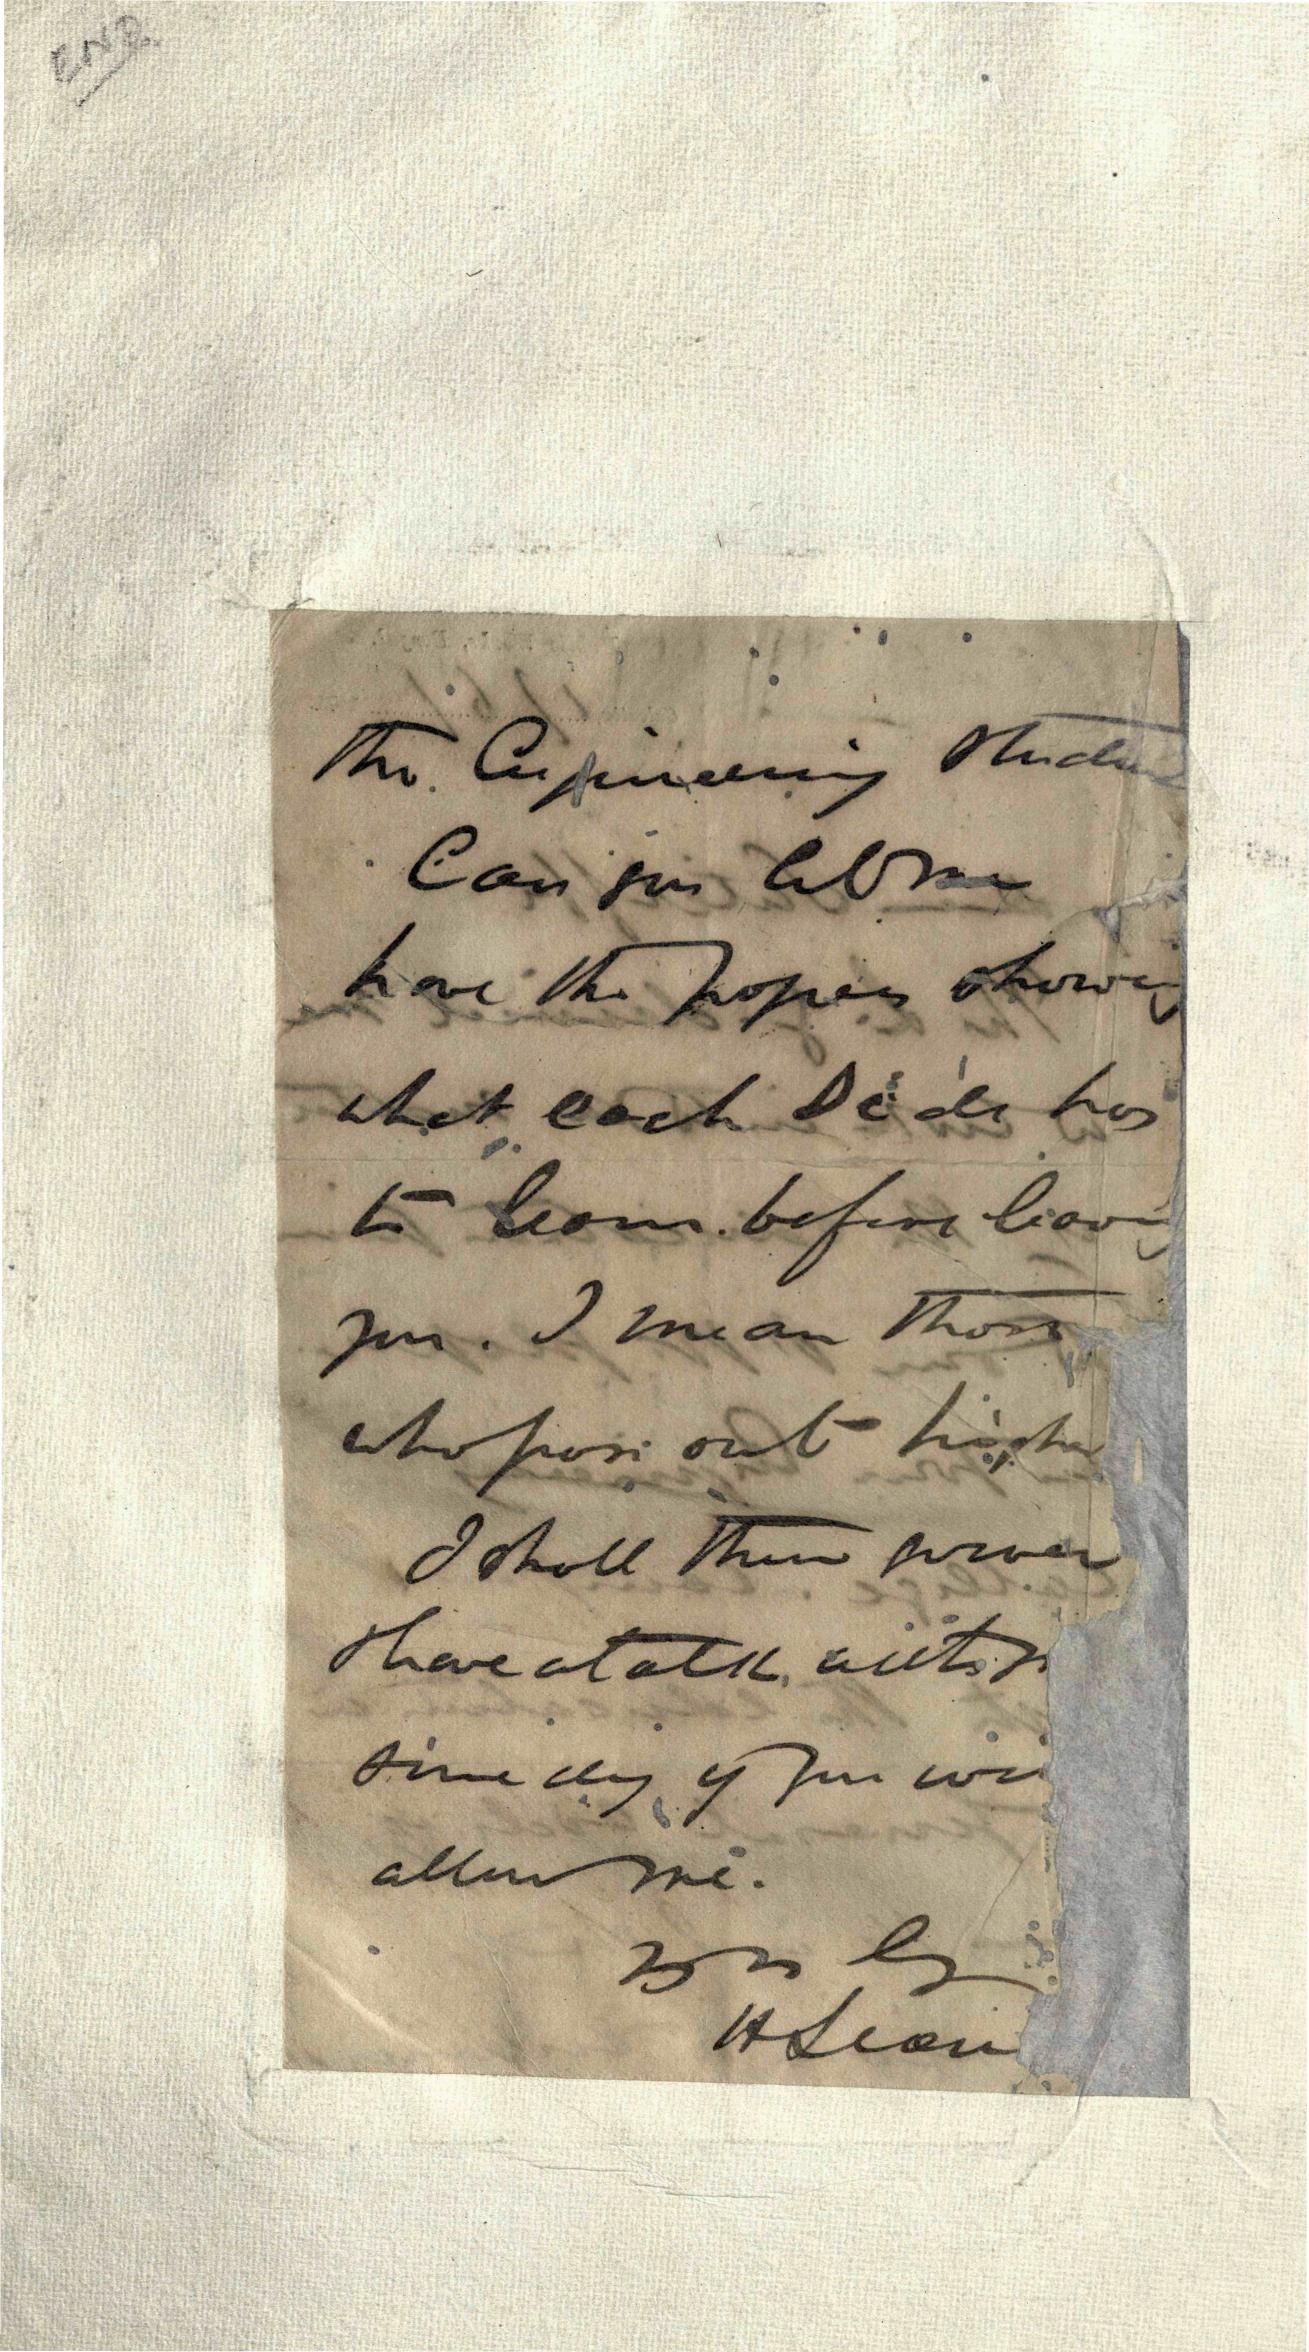 Eng.
The Engineering Studen
Can you let me
have the papers showing
what each Side has
to learn before leaving
you. I mean those
who pass out higher
I shall then
have a talk with y
some day if you wi
allow me.
H Lear